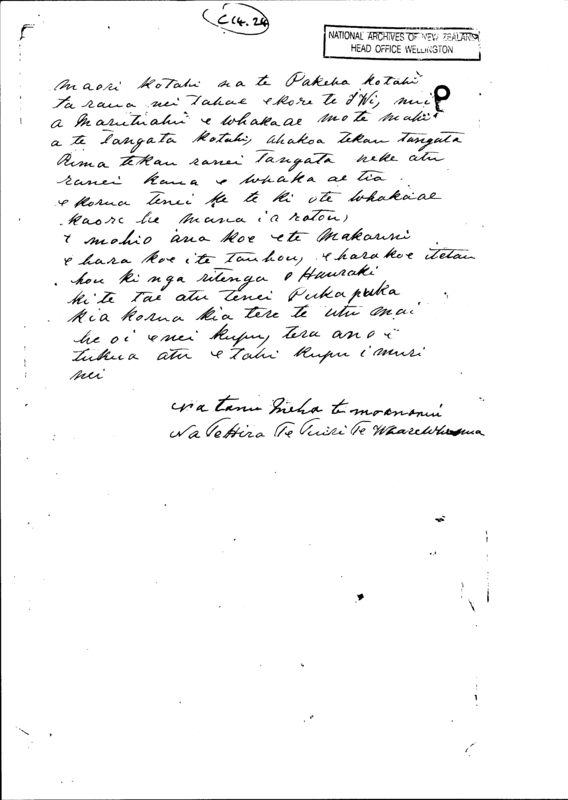 C14.24
NATIONAL ARCHIVES OF NEW ZEALAND
HEAD OFFICE WELLINGTON
maori kotahi na te Pakeha kotahi
ta raua nei Tahae ekore te IWi, nui
a Marutuahu e whakaae mo te mahi
a te Tangata kotahi, ahakoa tekau tangata
Rima tekau ranei Tangata neke atu
ranei kaua e whaka ae tia
e korua tenei ke te ki ote whakaae
kaore he mana i a ratou,
e mohio ana koe ete Makarini
e hara koe ite tauhou, ehara koe itetau
hou ki nga ritenga o Hauraki
ki te tae atu tenei Pukapuka
kia korua kia tere te utu mai
he oi enei kupu, tera ano e
tukua atu etahi kupu i muri
nei
Na tana Meha te moananui
Na Te Hira Te Tuiri Te